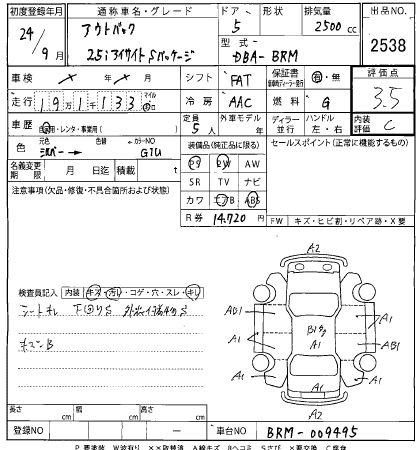 初度登録年月 通称車名・グレード ドア 形状 排気量 出品NO.
24/9月 アウトバック 5 2500cc 2538
2.5i アイサイト Sパッケージ 型式 DBA-BRM
車検 シフト FAT 保証書 有・無 評価点
走行 19万1千133 マイル 冷房 AAC 燃料 G 3.5
車歴 自家用・レンタ・事業用( ) 定員 5人 外車モデル年 ディラー 並行 ハンドル 左・右 内装評価 C
色 元色 シルバー 色替 カラーNO G1U 装備品(純正品に限る) セールスポイント(正常に機能するもの)
名義変更期限 月 日迄 積載 t PS PW AW
注意事項(欠品・修復・不具合箇所および状態) SR TV ナビ
カワ エアB ABS
R券 14,720円 FW キズ・ヒビ割・リペア跡・X要
A2
検査員記入 内装 キズ・汚レ・コゲ・穴・スレ・キレ
シートキレ 下回りS
AD1 A1
A1 B1 A1 AB1
A1 A1 A1
A2
長さ cm 幅 cm 高さ cm
登録NO ー 車台NO BRM-009495
P要塗装 W波有り XX取替済 A線キズ Bヘコミ Sさび X要交換 C腐食